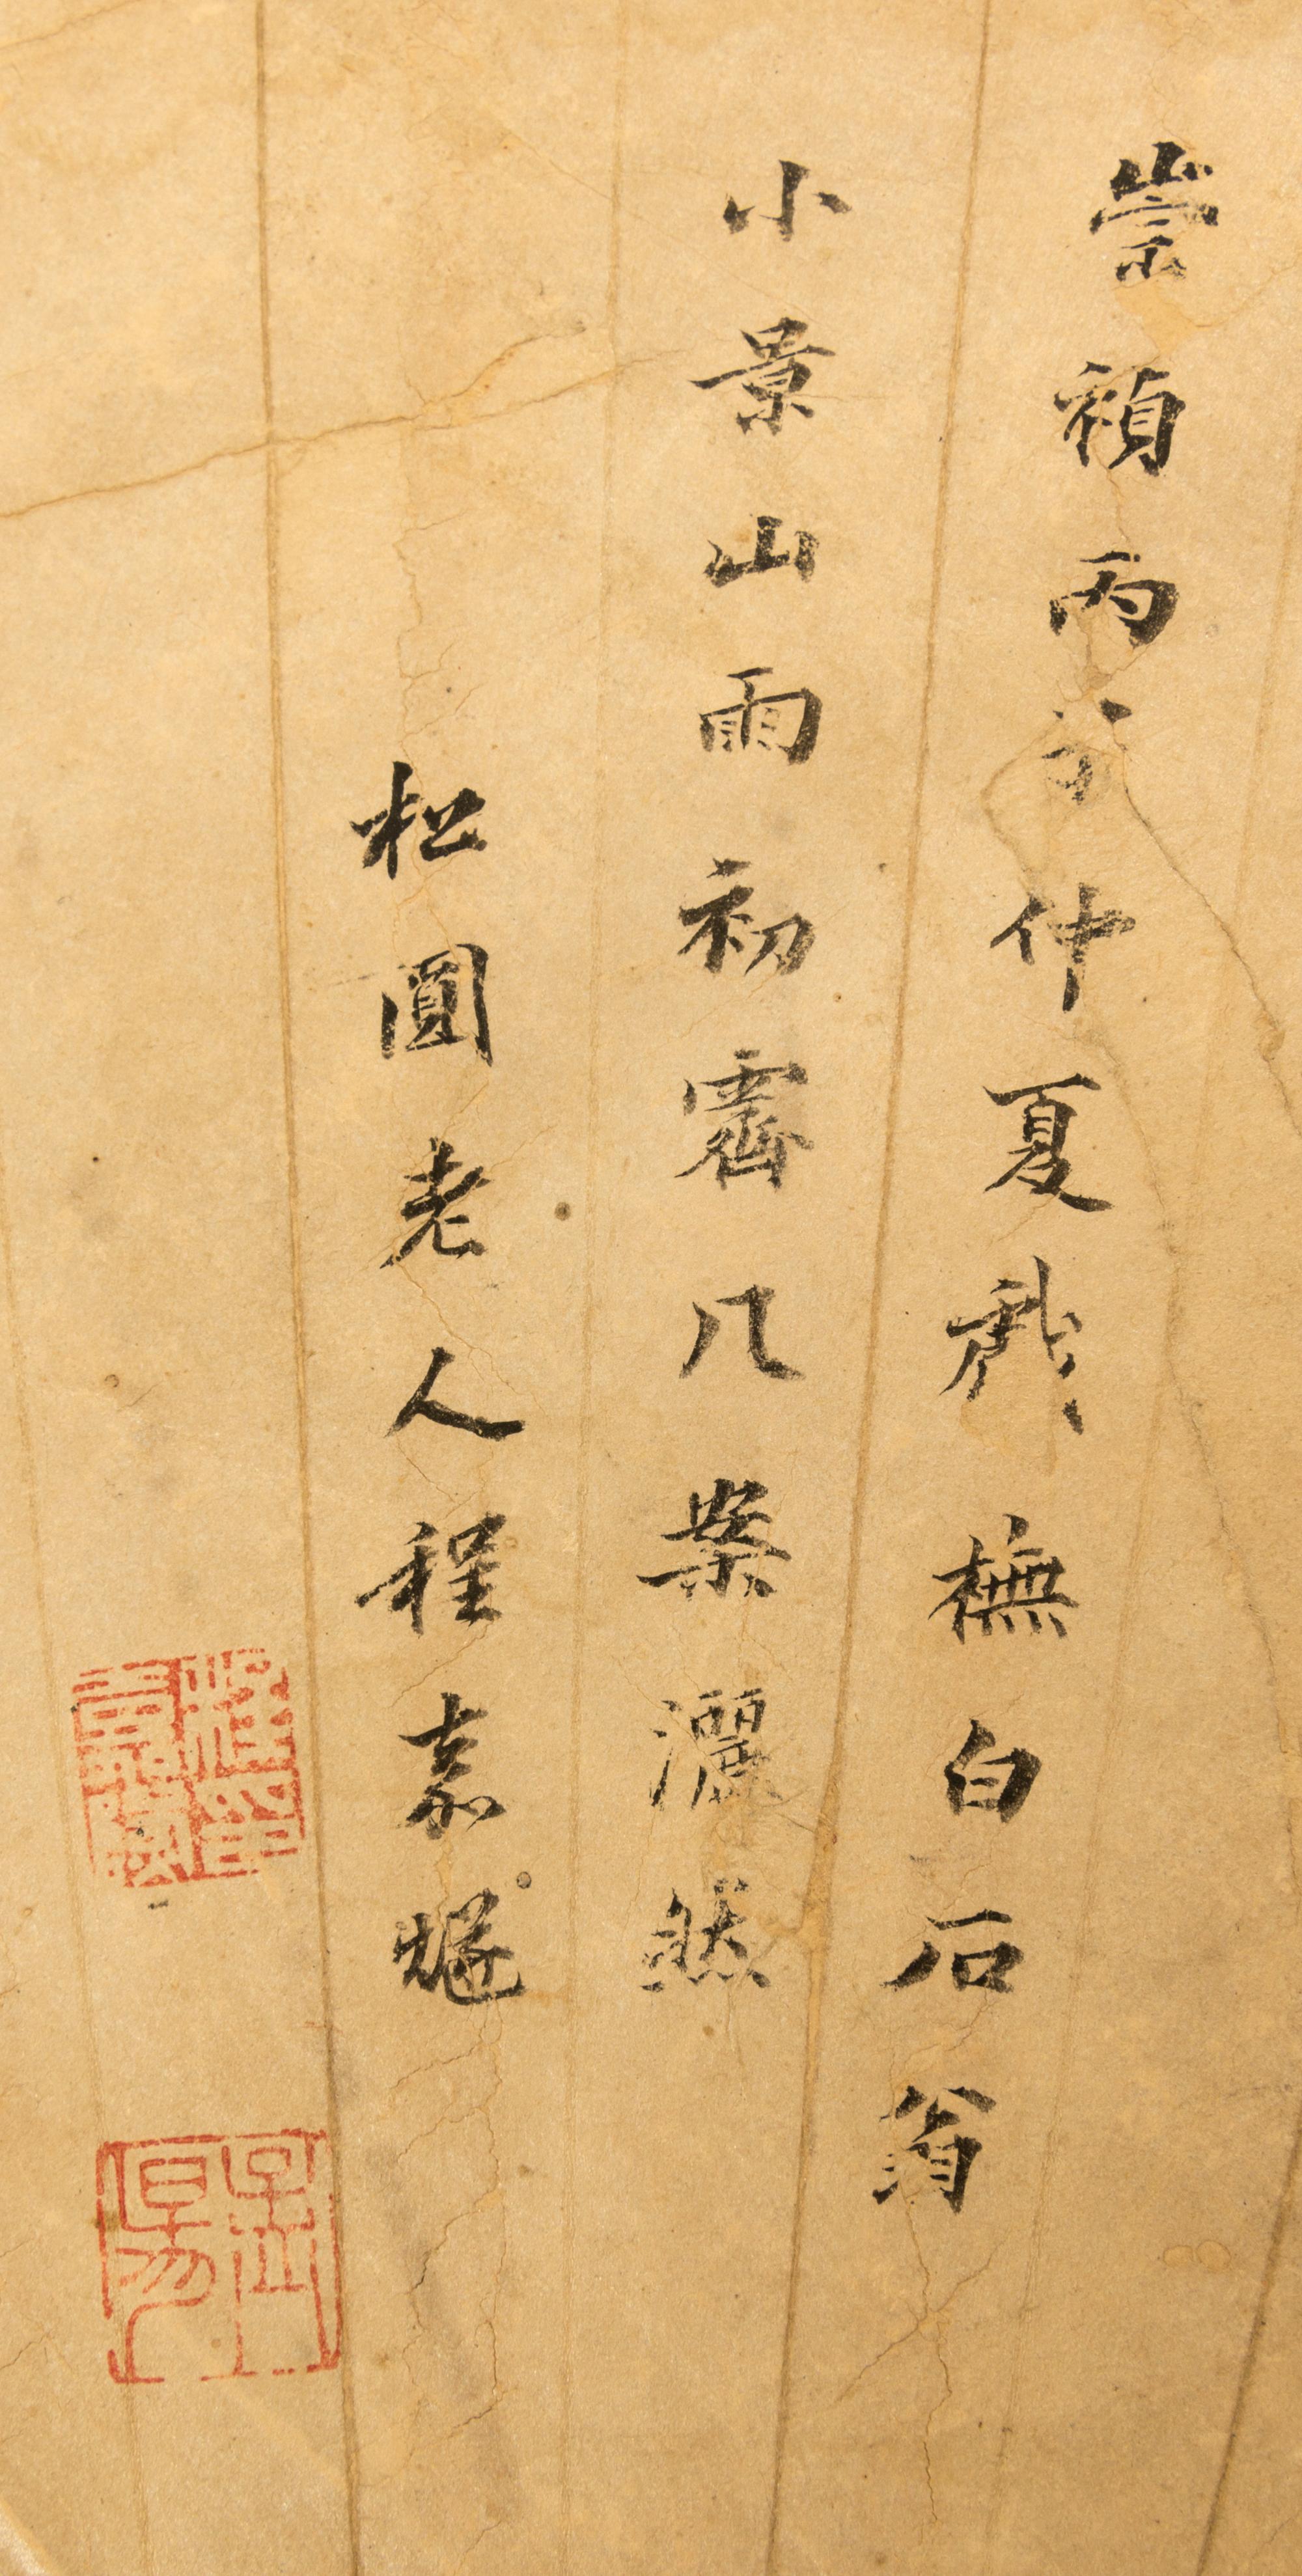 崇禎丙子仲夏戲橅白石翁
小景山雨初霽几案灑然
松圓老人程嘉燧
孟陽